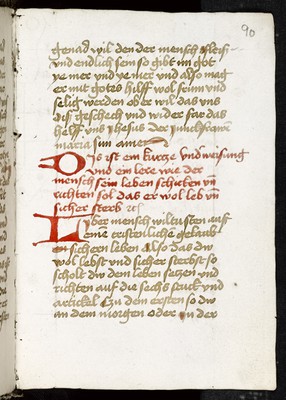 90
genad wil den der mensch
und endlich sein so gibt im got
ye mer und ye mer und also mag
er mit gotes hilff wol frum und
selig werden ob er wil das uns
dis geschech und wider far das
helff uns Jhesus der Junckfrawen
maria sun amen
Dis ist ein kurcze underweisung
und ein lere wie der
mensch sein leben schicken und
richten sol das er wol leb und
sicher sterb
Lieber mensch wiltu sten auf
cristenliche gelaub
en sichern leben Also das du
wol lebst und sicher sterbst so
scholt du dein leben seczen und
richten auf die sechs stuck und
artickel Zu dem ersten so du
an dem morgen oder zu der